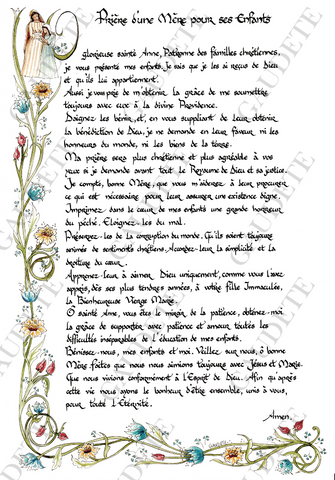 Prière d'une Mère pour ses Enfants
glorieuse sainte Anne, Patronne des familles chrétiennes,
je vous présente mes enfants. Je sais que je les ai reçus de Dieu
et qu'ils lui appartiennent.
Aussi je vous prie de m'obtenir la grâce de me soumettre
toujours avec eux à la divine Providence.
Daignez les bénir, et, en vous suppliant de leur obtenir
la bénédiction de Dieu, je ne demande en leur faveur, ni les
honneurs du monde, ni les biens de la terre.
Ma prière sera plus chrétienne et plus agréable à vos
yeux si je demande avant tout le Royaume de Dieu et sa justice.
Je compte, bonne Mère, que vous m'aiderez à leur procurer
ce qui est nécessaire pour leur assurer une existence digne.
Imprimez dans le cœur de mes enfants une grande horreur
du péché. Eloignez-les du mal.
Préservez-les de la corruption du monde. Qu'ils soient toujours
animés de sentiments chrétiens. Accordez-leur la simplicité et la
droiture du cœur.
Apprenez-leur à aimer Dieu uniquement, comme vous l'avez
appris, dès ses plus tendres années, à votre fille Immaculée,
la Bienheureuse Vierge Marie.
Ô sainte Anne, vous êtes le miroir de la patience, obtenez-moi
la grâce de supporter avec patience et amour toutes les
difficultés inséparables de l'éducation de mes enfants.
Bénissez-nous, mes enfants et moi. Veillez sur nous, ô bonne
Mère. faites que nous nous aimions toujours avec Jésus et Marie.
Que nous vivions conformément à l'Esprit de Dieu. Afin qu'après
cette vie nous ayons le bonheur d'être ensemble, unis à vous,
pour toute l'Éternité.
Amen.